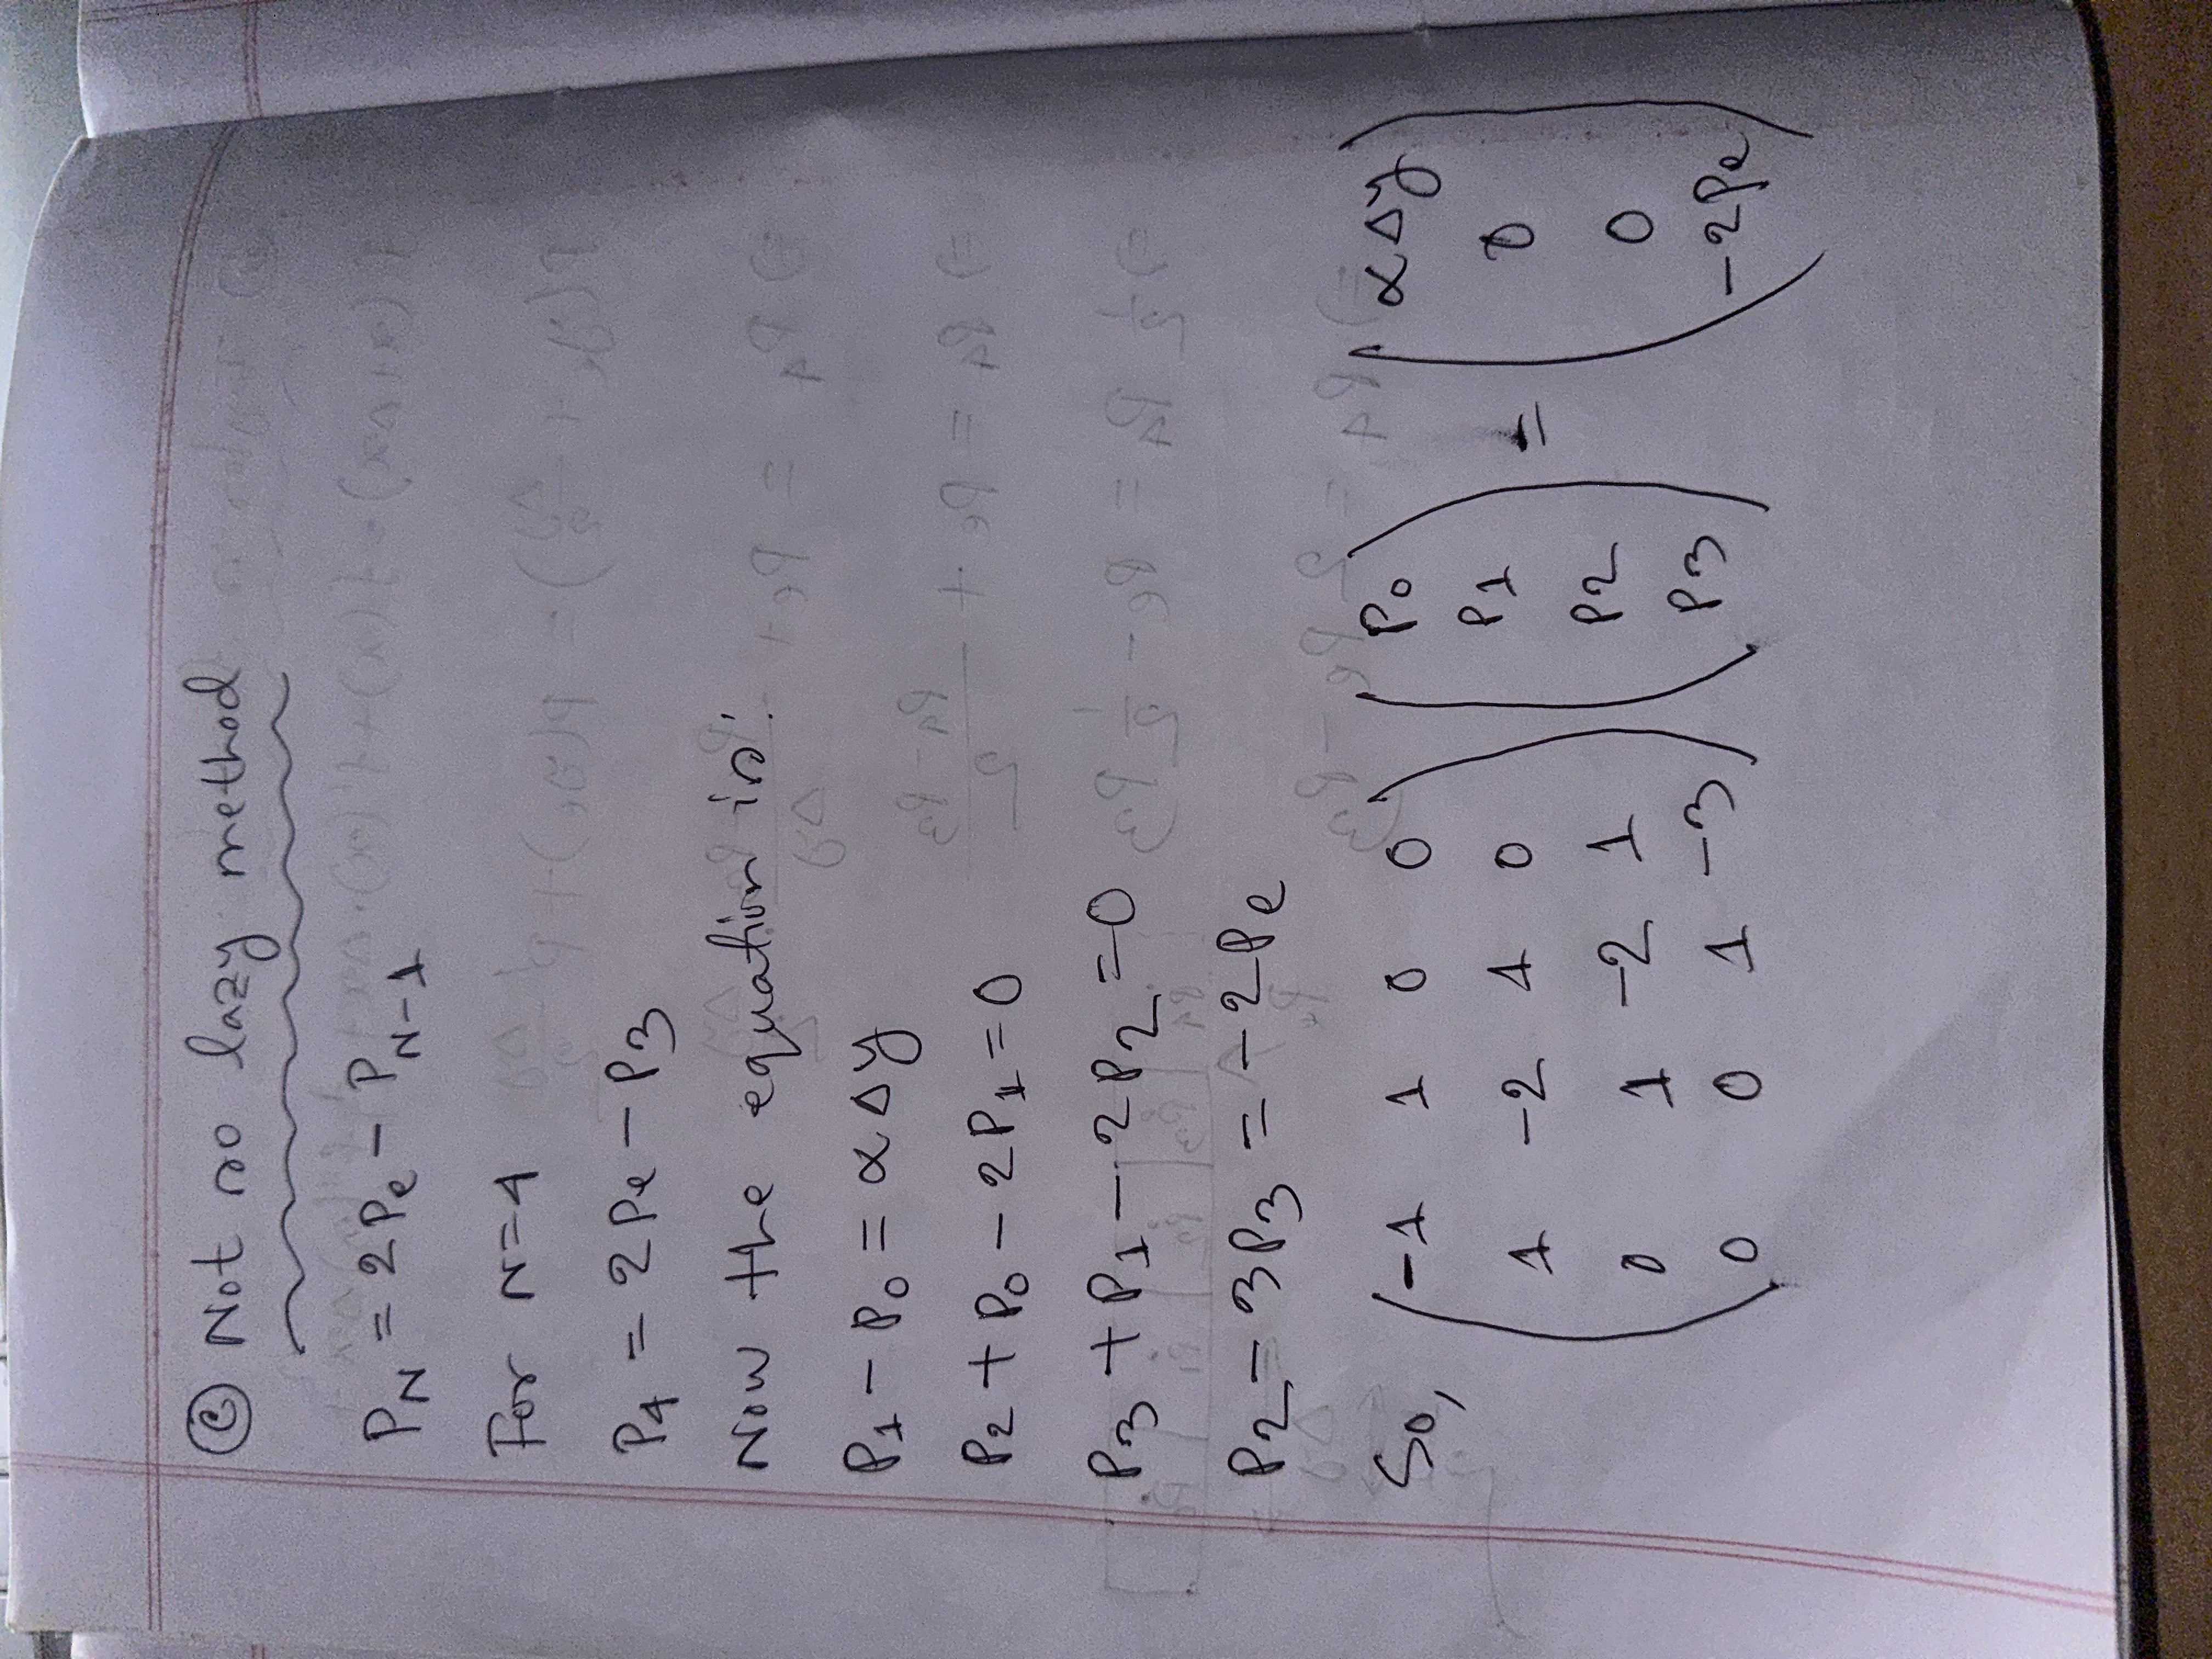 Ⓒ Not so lazy method
P_N = 2P_e - P_{N-1}
For N=4
P_4 = 2P_e - P_3
Now the equation is:
P_1 - P_0 = αΔy
P_2 + P_0 - 2P_1 = 0
P_3 + P_1 - 2P_2 = 0
P_2 - 3P_3 = -2P_e
So, (-1 1 0 0) (P_0) = (αΔy)
(1 -2 1 0) (P_1) (0)
(0 1 -2 1) (P_2) (0)
(0 0 1 -3) (P_3) (-2P_e)